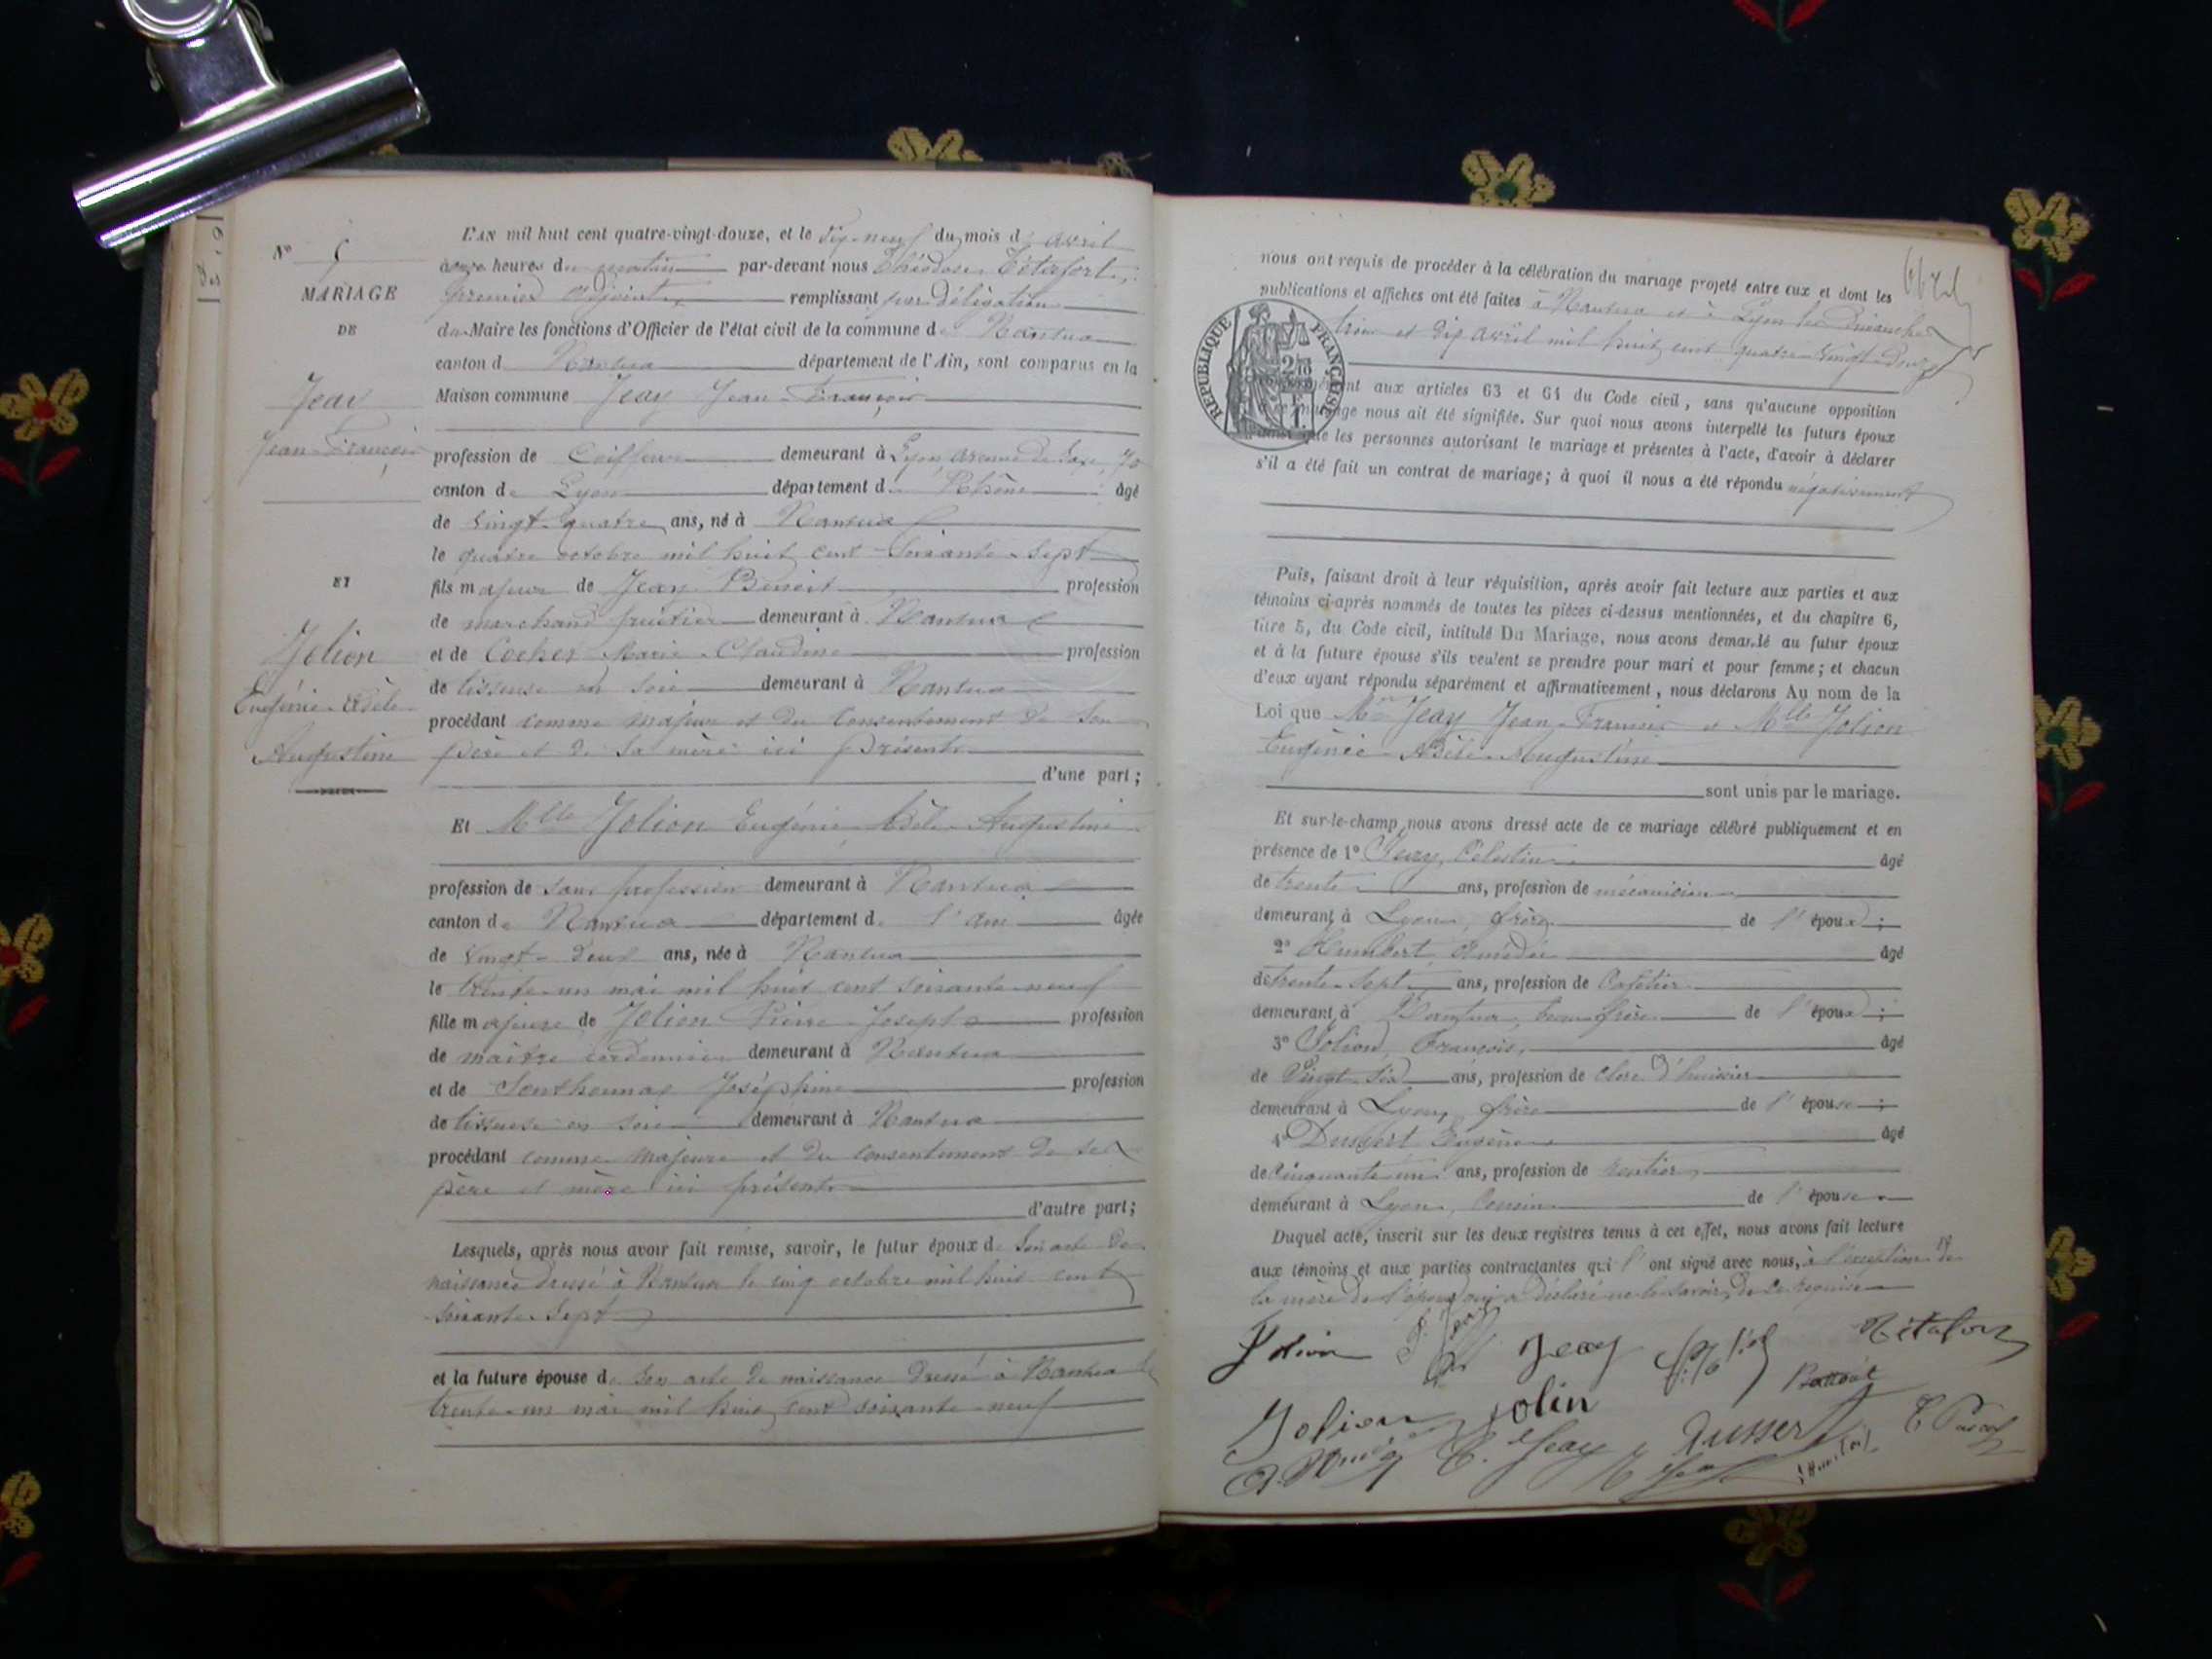 N° 6
MARIAGE
DE
Jeay
Jean-François
ET
Jolion
Eugénie-Adèle
Augustine
L'AN mil huit cent quatre-vingt-douze, et le dix-neuf du mois d'avril
onze heures du matin par-devant nous Théodose Tétafort,
premier adjoint, remplissant par délégation
du Maire les fonctions d'Officier de l'état civil de la commune de Nantua
canton de Nantua département de l'Ain, sont comparus en la
Maison commune Jeay Jean-François
profession de Coiffeur demeurant à Lyon avenue de Saxe, 70
canton de Lyon département du Rhône âgé
de vingt-quatre ans, né à Nantua
le quatre octobre mil huit cent soixante-sept
fils majeur de Jean Benoit profession
de marchand fruitier demeurant à Nantua
et de Cochet Marie-Claudine profession
de tisseuse en soie demeurant à Nantua
procédant comme majeur et du consentement de son
père et de sa mère ici présents
d'une part;
Et Mlle Jolion Eugénie Adèle Augustine
profession de sans profession demeurant à Nantua
canton de Nantua département de l'Ain âgée
de vingt-deux ans, née à Nantua
le trente-un mai mil huit cent soixante-neuf
fille majeure de Jolion Pierre-Joseph profession
de maître cordonnier demeurant à Nantua
et de Sonthonnax Joséphine profession
de tisseuse en soie demeurant à Nantua
procédant comme majeure et du consentement de ses
père et mère ici présents
d'autre part;
Lesquels, après nous avoir fait remise, savoir, le futur époux de son acte de
naissance dressé à Nantua le cinq octobre mil huit cent
soixante-sept
et la future épouse de son acte de naissance dressé à Nantua le
trente-un mai mil huit cent soixante-neuf
nous ont requis de procéder à la célébration du mariage projeté entre eux et dont les
publications et affiches ont été faites à Nantua et à Lyon les dimanches
trois et dix avril mil huit cent quatre-vingt-douze
RÉPUBLIQUE FRANÇAISE
aux articles 63 et 64 du Code civil, sans qu'aucune opposition
nous ait été signifiée. Sur quoi nous avons interpellé les futurs époux
les personnes autorisant le mariage et présentes à l'acte, d'avoir à déclarer
s'il a été fait un contrat de mariage; à quoi il nous a été répondu négativement
Puis, faisant droit à leur réquisition, après avoir fait lecture aux parties et aux
témoins ci-après nommés de toutes les pièces ci-dessus mentionnées, et du chapitre 6,
titre 5, du Code civil, intitulé Du Mariage, nous avons demandé au futur époux
et à la future épouse s'ils veulent se prendre pour mari et pour femme; et chacun
d'eux ayant répondu séparément et affirmativement, nous déclarons Au nom de la
Loi que Mr Jeay Jean-François et Mlle Jolion
Eugénie-Adèle-Augustine
sont unis par le mariage.
Et sur-le-champ nous avons dressé acte de ce mariage célébré publiquement et en
présence de 1° Jeay, Célestin âgé
de trente ans, profession de mécanicien
demeurant à Lyon, frère de l'époux;
2° Humbert Amédée âgé
de trente-sept ans, profession de Cafetier
demeurant à Nantua, beau-frère de l'époux;
3° Jolion, François, âgé
de Vingt-six ans, profession de clerc d'huissier
demeurant à Lyon, frère de l'épouse;
4° Dussert Eugène âgé
de cinquante-un ans, profession de rentier
demeurant à Lyon, cousin de l'épouse
Duquel acte, inscrit sur les deux registres tenus à cet effet, nous avons fait lecture
aux témoins et aux parties contractantes qui l'ont signé avec nous, à l'exception de
la mère de l'époux qui a déclaré ne le savoir, de ce requise
Jolion Jeay Tétafort
Jolion Jolin
C. Jeay Dussert